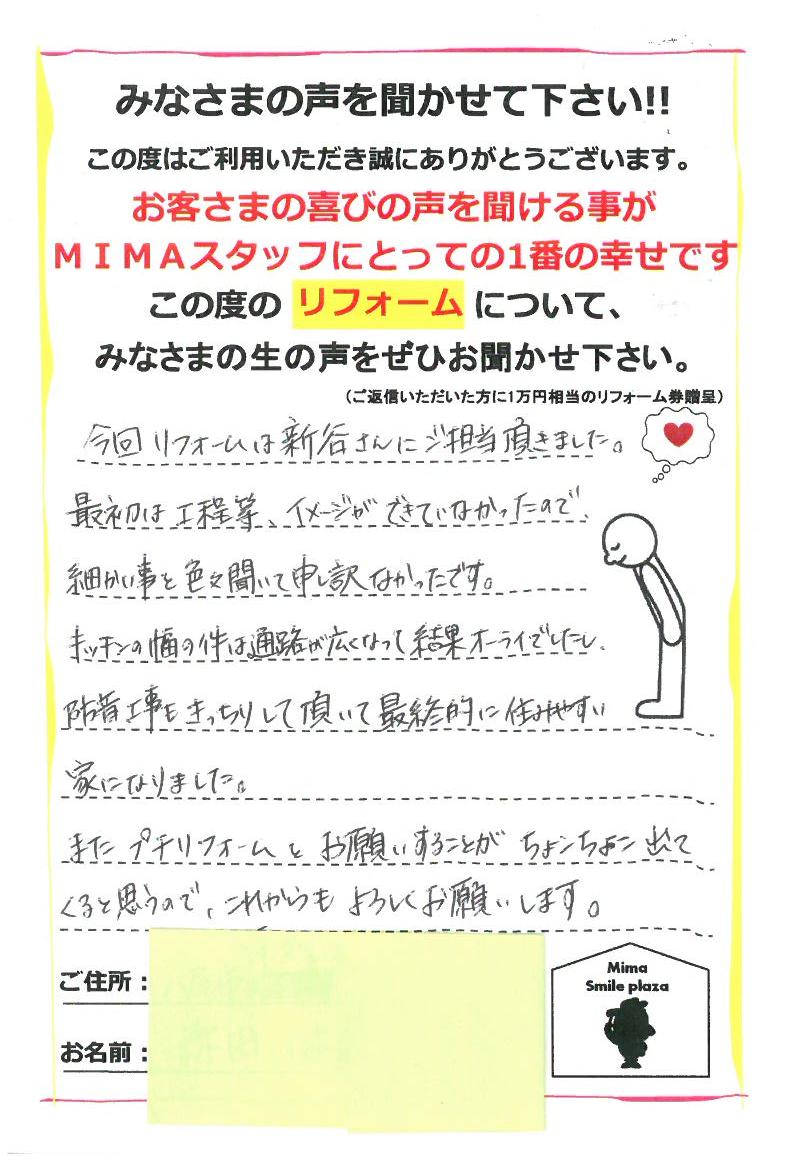 みなさまの声を聞かせて下さい!!
この度はご利用いただき誠にありがとうございます。
お客さまの喜びの声を聞ける事が
ＭＩＭＡスタッフにとっての1番の幸せです
この度の リフォーム について、
みなさまの生の声をぜひお聞かせ下さい。
（ご返信いただいた方に1万円相当のリフォーム券贈呈）
今回リフォームは新谷さんにご担当頂きました。
最初は工程等、イメージができていなかったので、
細かい事と色々聞いて申し訳なかったです。
キッチンの幅の件は通路が広くなって結果オーライでしたし、
防音工事もきっちりして頂いて最終的に住みやすい
家になりました。
またプチリフォームとお願いすることがちょこちょこ出て
くると思うので、これからもよろしくお願いします。
ご住所：
お名前：
Mima
Smile plaza